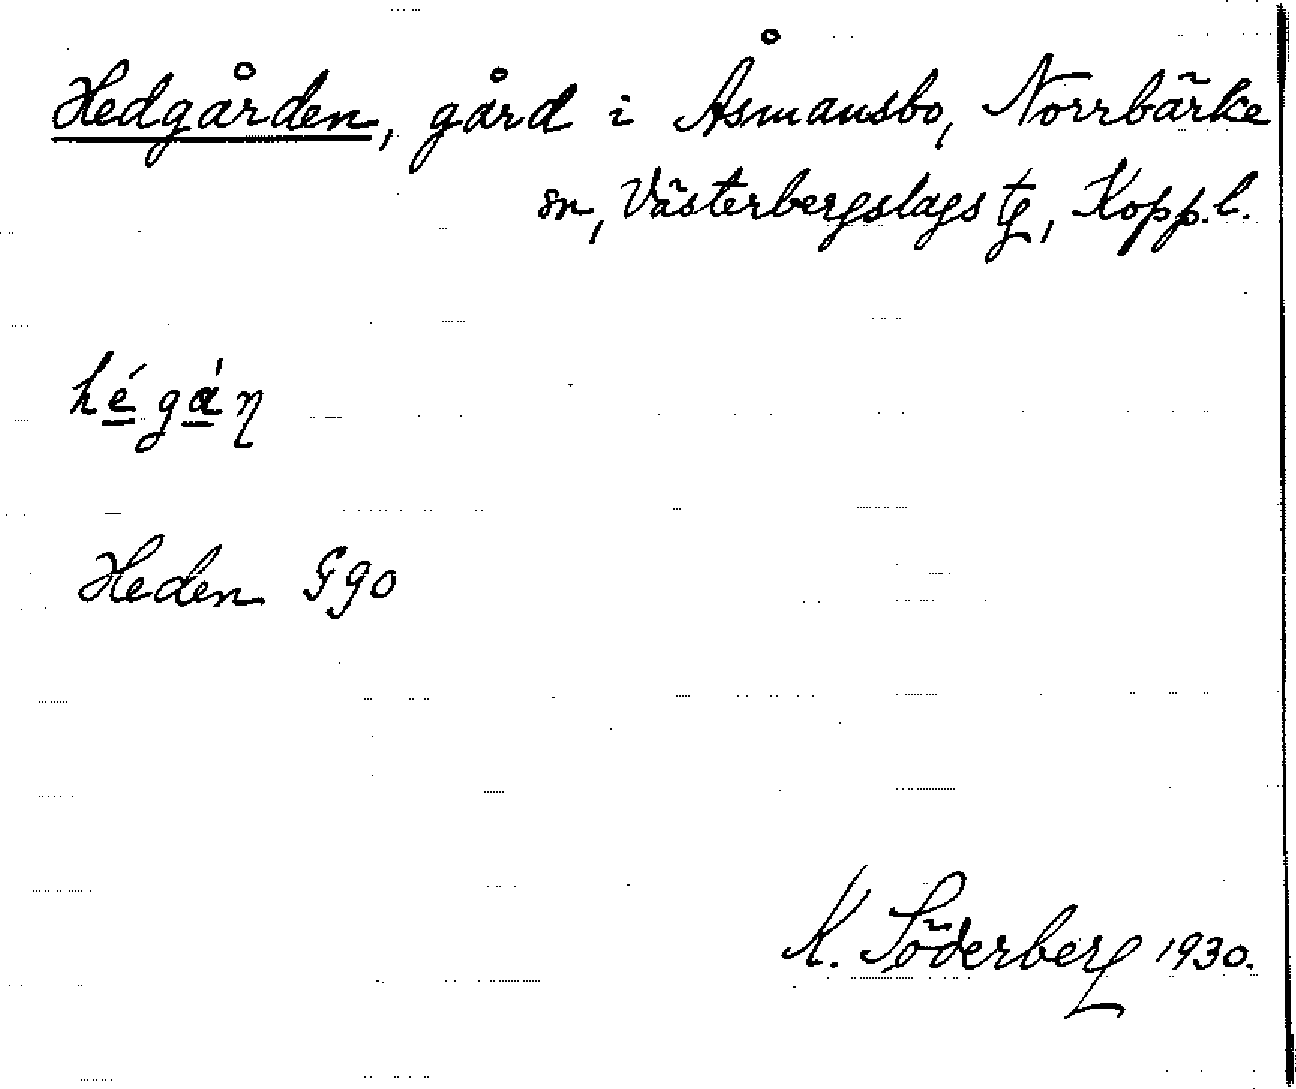 Hedgården, gård i Åsmansbo, Norrbärke
sn, Västerbergslags tg, Kopp.l.
hégáη
Heden Ggo
K. Söderberg 1930.